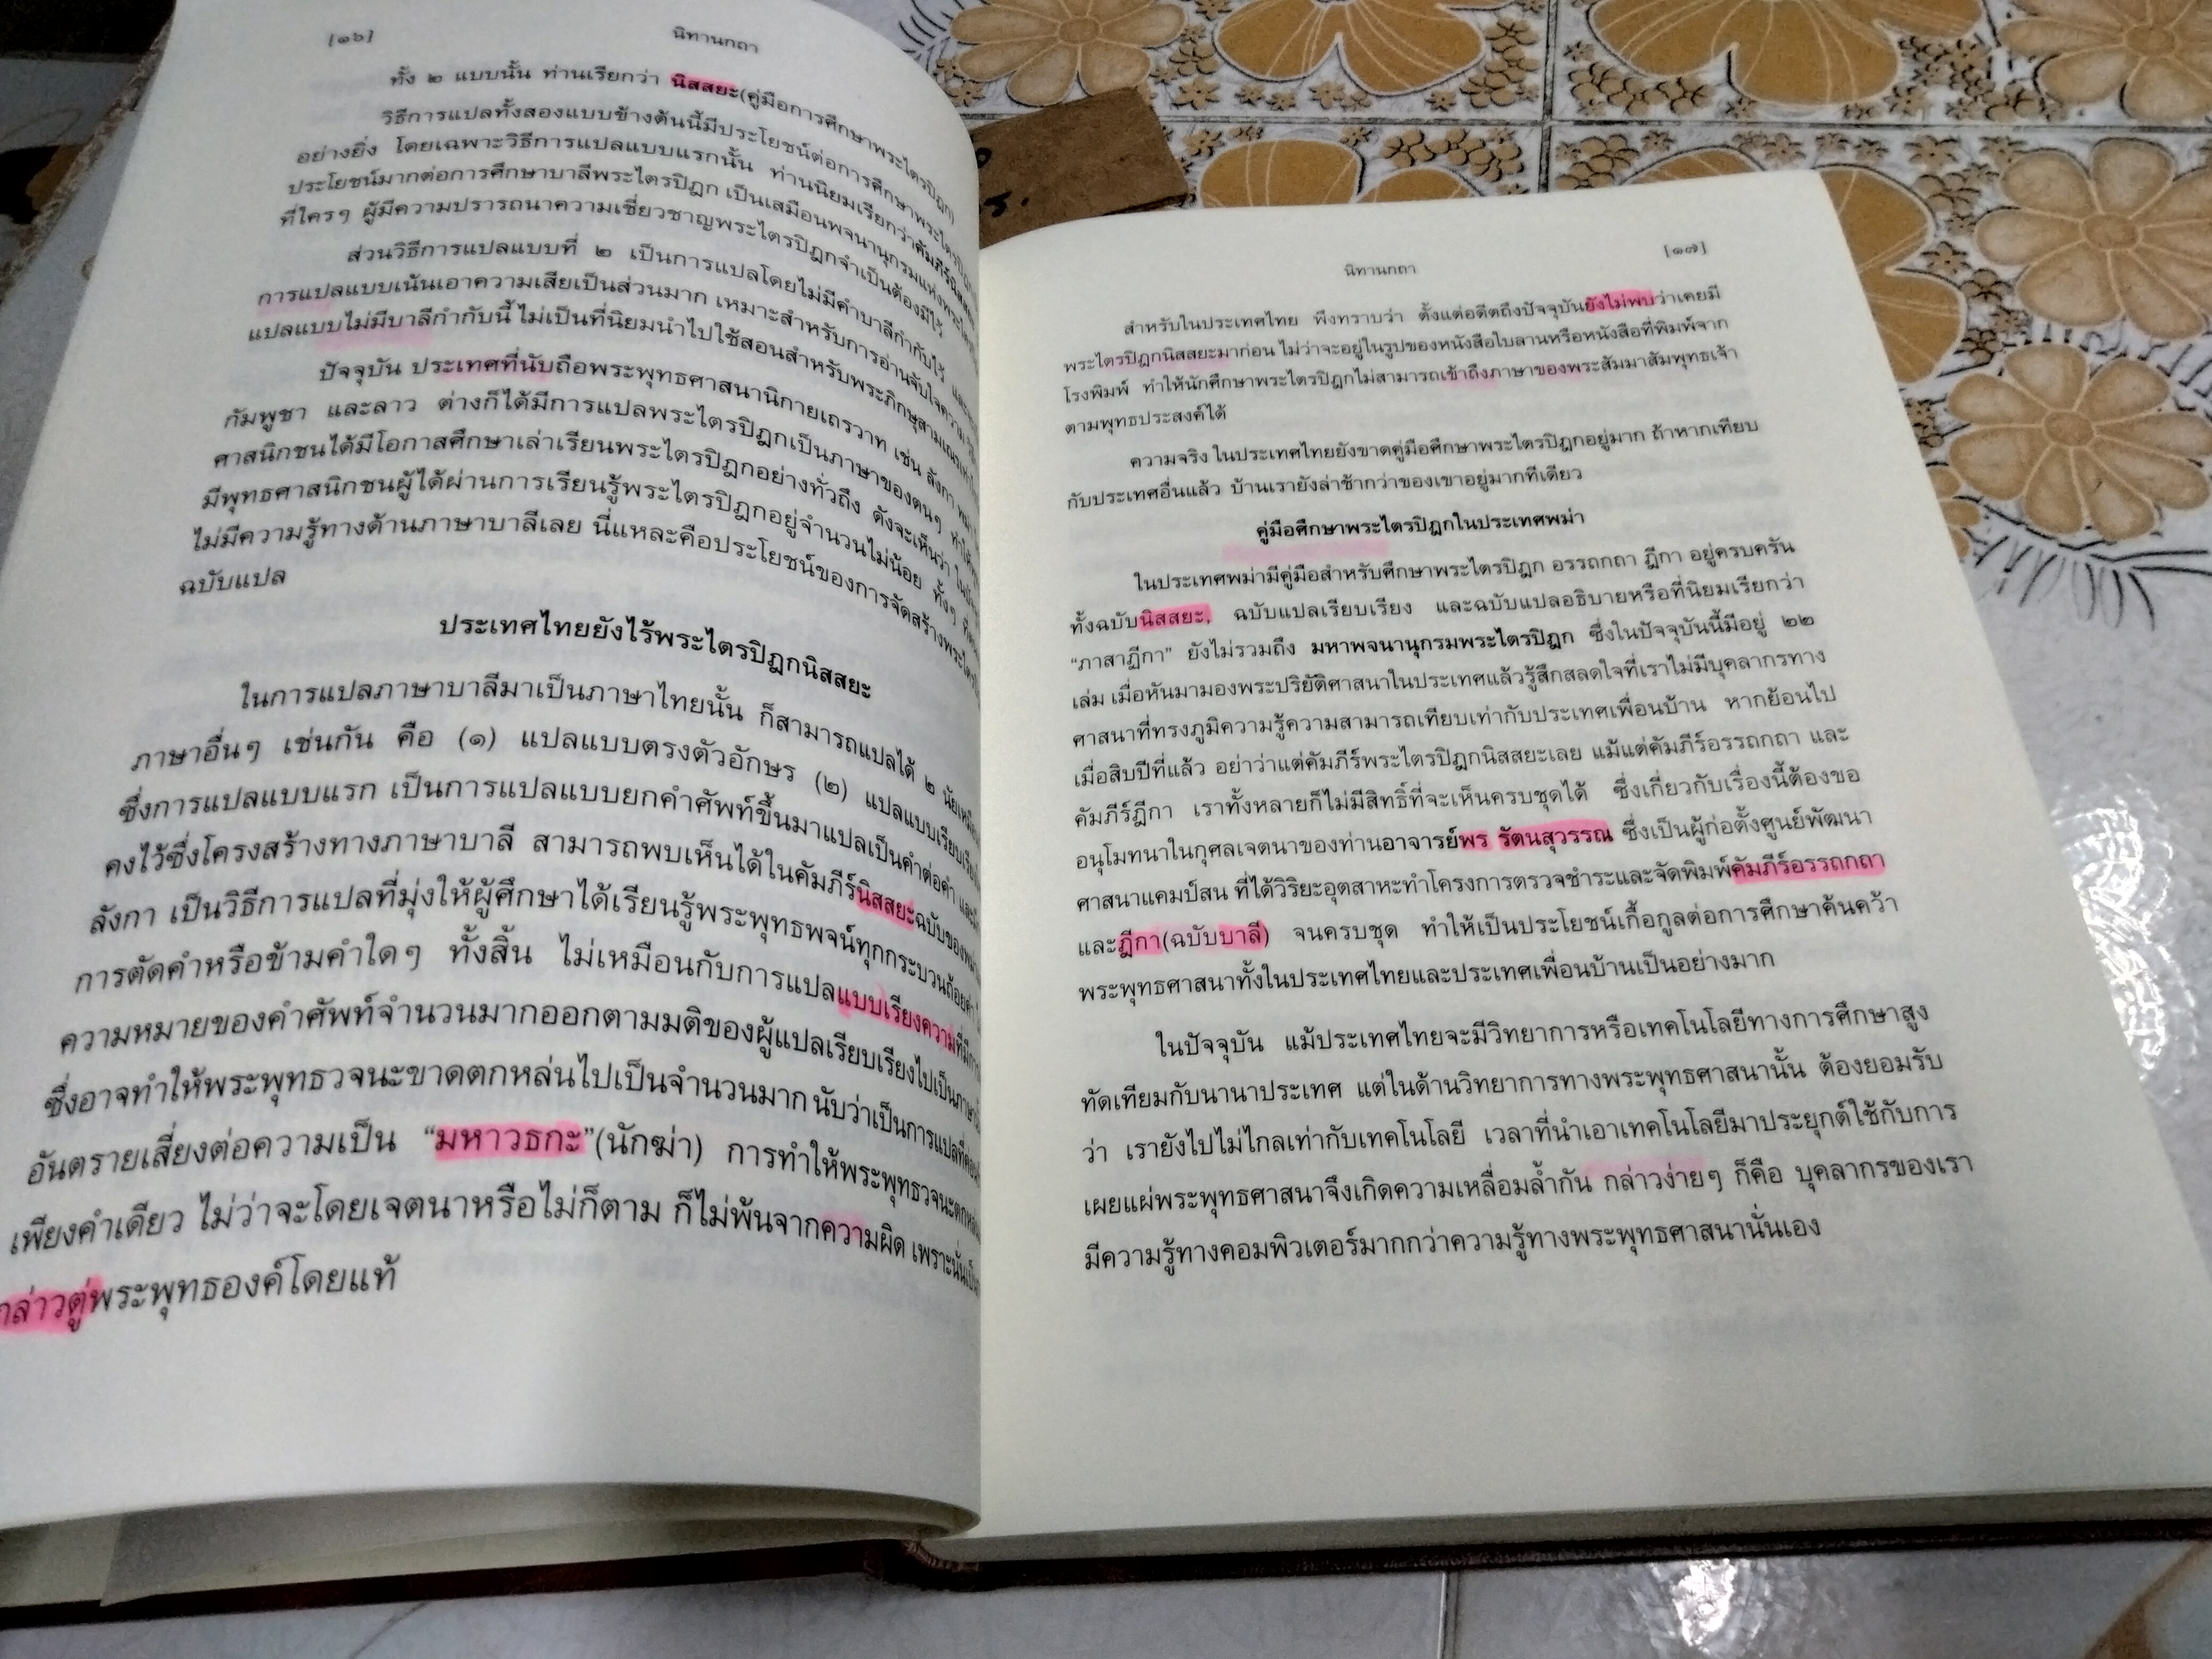 [๑๖] นิทานกถา
ทั้ง ๒ แบบนั้น ท่านเรียกว่า นิสสยะ(คู่มือการศึกษาพระไตรปิฎก)
วิธีการแปลทั้งสองแบบข้างต้นนี้มีประโยชน์ต่อการศึกษาพระไตรปิฎก
อย่างยิ่ง โดยเฉพาะวิธีการแปลแบบแรกนั้น ท่านนิยมเรียกว่าคัมภีร์นิสสยะ
ประโยชน์มากต่อการศึกษาบาลีพระไตรปิฎก เป็นเสมือนพจนานุกรมแห่งพระไตร
ที่ใครๆ ผู้มีความปรารถนาความเชี่ยวชาญพระไตรปิฎกจำเป็นต้องมีไว้
ส่วนวิธีการแปลแบบที่ ๒ เป็นการแปลโดยไม่มีคำบาลีกำกับไว้ และ
การแปลแบบเน้นเอาความเสียเป็นส่วนมาก เหมาะสำหรับการอ่านจับใจความ
แปลแบบไม่มีบาลีกำกับนี้ ไม่เป็นที่นิยมนำไปใช้สอนสำหรับพระภิกษุสามเณร
ปัจจุบัน ประเทศที่นับถือพระพุทธศาสนานิกายเถรวาท เช่น ลังกา พม่า
กัมพูชา และลาว ต่างก็ได้มีการแปลพระไตรปิฎกเป็นภาษาของตนๆ ทำให้
ศาสนิกชนได้มีโอกาสศึกษาเล่าเรียนพระไตรปิฎกอย่างทั่วถึง ดังจะเห็นว่า
มีพุทธศาสนิกชนผู้ได้ผ่านการเรียนรู้พระไตรปิฎกอยู่จำนวนไม่น้อย ทั้งๆ ที่
ไม่มีความรู้ทางด้านภาษาบาลีเลย นี่แหละคือประโยชน์ของการจัดสร้างพระไตร
ฉบับแปล
ประเทศไทยยังไร้พระไตรปิฎกนิสสยะ
ในการแปลภาษาบาลีมาเป็นภาษาไทยนั้น ก็สามารถแปลได้ ๒ นัยเหมือน
ภาษาอื่นๆ เช่นกัน คือ (๑) แปลแบบตรงตัวอักษร (๒) แปลแบบเรียบเรียง
ซึ่งการแปลแบบแรก เป็นการแปลแบบยกคำศัพท์ขึ้นมาแปลเป็นคำต่อคำ และ
คงไว้ซึ่งโครงสร้างทางภาษาบาลี สามารถพบเห็นได้ในคัมภีร์นิสสยะฉบับของพม่า
ลังกา เป็นวิธีการแปลที่มุ่งให้ผู้ศึกษาได้เรียนรู้พระพุทธพจน์ทุกกระบวนถ้อยคำ
การตัดคำหรือข้ามคำใดๆ ทั้งสิ้น ไม่เหมือนกับการแปลแบบเรียงความที่มีการ
ความหมายของคำศัพท์จำนวนมากออกตามมติของผู้แปลเรียบเรียงไปเป็นภาษา
ซึ่งอาจทำให้พระพุทธวจนะขาดตกหล่นไปเป็นจำนวนมาก นับว่าเป็นการแปลที่
อันตรายเสี่ยงต่อความเป็น “มหาวธกะ”(นักฆ่า) การทำให้พระพุทธวจนะตกหล่น
เพียงคำเดียว ไม่ว่าจะโดยเจตนาหรือไม่ก็ตาม ก็ไม่พ้นจากความผิด เพราะนั่นเป็น
กล่าวตู่พระพุทธองค์โดยแท้
นิทานกถา [๑๗]
สำหรับในประเทศไทย พึงทราบว่า ตั้งแต่อดีตถึงปัจจุบันยังไม่พบว่าเคยมี
พระไตรปิฎกนิสสยะมาก่อน ไม่ว่าจะอยู่ในรูปของหนังสือใบลานหรือหนังสือที่พิมพ์จาก
โรงพิมพ์ ทำให้นักศึกษาพระไตรปิฎกไม่สามารถเข้าถึงภาษาของพระสัมมาสัมพุทธเจ้า
ตามพุทธประสงค์ได้
ความจริง ในประเทศไทยยังขาดคู่มือศึกษาพระไตรปิฎกอยู่มาก ถ้าหากเทียบ
กับประเทศอื่นแล้ว บ้านเรายังล่าช้ากว่าของเขาอยู่มากทีเดียว
คู่มือศึกษาพระไตรปิฎกในประเทศพม่า
ในประเทศพม่ามีคู่มือสำหรับศึกษาพระไตรปิฎก อรรถกถา ฎีกา อยู่ครบครัน
ทั้งฉบับนิสสยะ, ฉบับแปลเรียบเรียง และฉบับแปลอธิบายหรือที่นิยมเรียกว่า
“ภาสาฎีกา” ยังไม่รวมถึง มหาพจนานุกรมพระไตรปิฎก ซึ่งในปัจจุบันนี้มีอยู่ ๒๒
เล่ม เมื่อหันมามองพระปริยัติศาสนาในประเทศแล้วรู้สึกสลดใจที่เราไม่มีบุคลากรทาง
ศาสนาที่ทรงภูมิความรู้ความสามารถเทียบเท่ากับประเทศเพื่อนบ้าน หากย้อนไป
เมื่อสิบปีที่แล้ว อย่าว่าแต่คัมภีร์พระไตรปิฎกนิสสยะเลย แม้แต่คัมภีร์อรรถกถา และ
คัมภีร์ฎีกา เราทั้งหลายก็ไม่มีสิทธิ์ที่จะเห็นครบชุดได้ ซึ่งเกี่ยวกับเรื่องนี้ต้องขอ
อนุโมทนาในกุศลเจตนาของท่านอาจารย์พร รัตนสุวรรณ ซึ่งเป็นผู้ก่อตั้งศูนย์พัฒนา
ศาสนาแคมป์สน ที่ได้วิริยะอุตสาหะทำโครงการตรวจชำระและจัดพิมพ์คัมภีร์อรรถกถา
และฎีกา(ฉบับบาลี) จนครบชุด ทำให้เป็นประโยชน์เกื้อกูลต่อการศึกษาค้นคว้า
พระพุทธศาสนาทั้งในประเทศไทยและประเทศเพื่อนบ้านเป็นอย่างมาก
ในปัจจุบัน แม้ประเทศไทยจะมีวิทยาการหรือเทคโนโลยีทางการศึกษาสูง
ทัดเทียมกับนานาประเทศ แต่ในด้านวิทยาการทางพระพุทธศาสนานั้น ต้องยอมรับ
ว่า เรายังไปไม่ไกลเท่ากับเทคโนโลยี เวลาที่นำเอาเทคโนโลยีมาประยุกต์ใช้กับการ
เผยแผ่พระพุทธศาสนาจึงเกิดความเหลื่อมล้ำกัน กล่าวง่ายๆ ก็คือ บุคลากรของเรา
มีความรู้ทางคอมพิวเตอร์มากกว่าความรู้ทางพระพุทธศาสนานั่นเอง